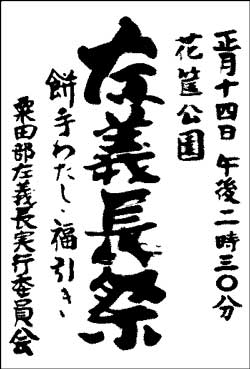 正月十四日 午後二時三〇分
花筐公園
左義長祭
餅手わたし・福引き・
粟田部左義長実行委員会